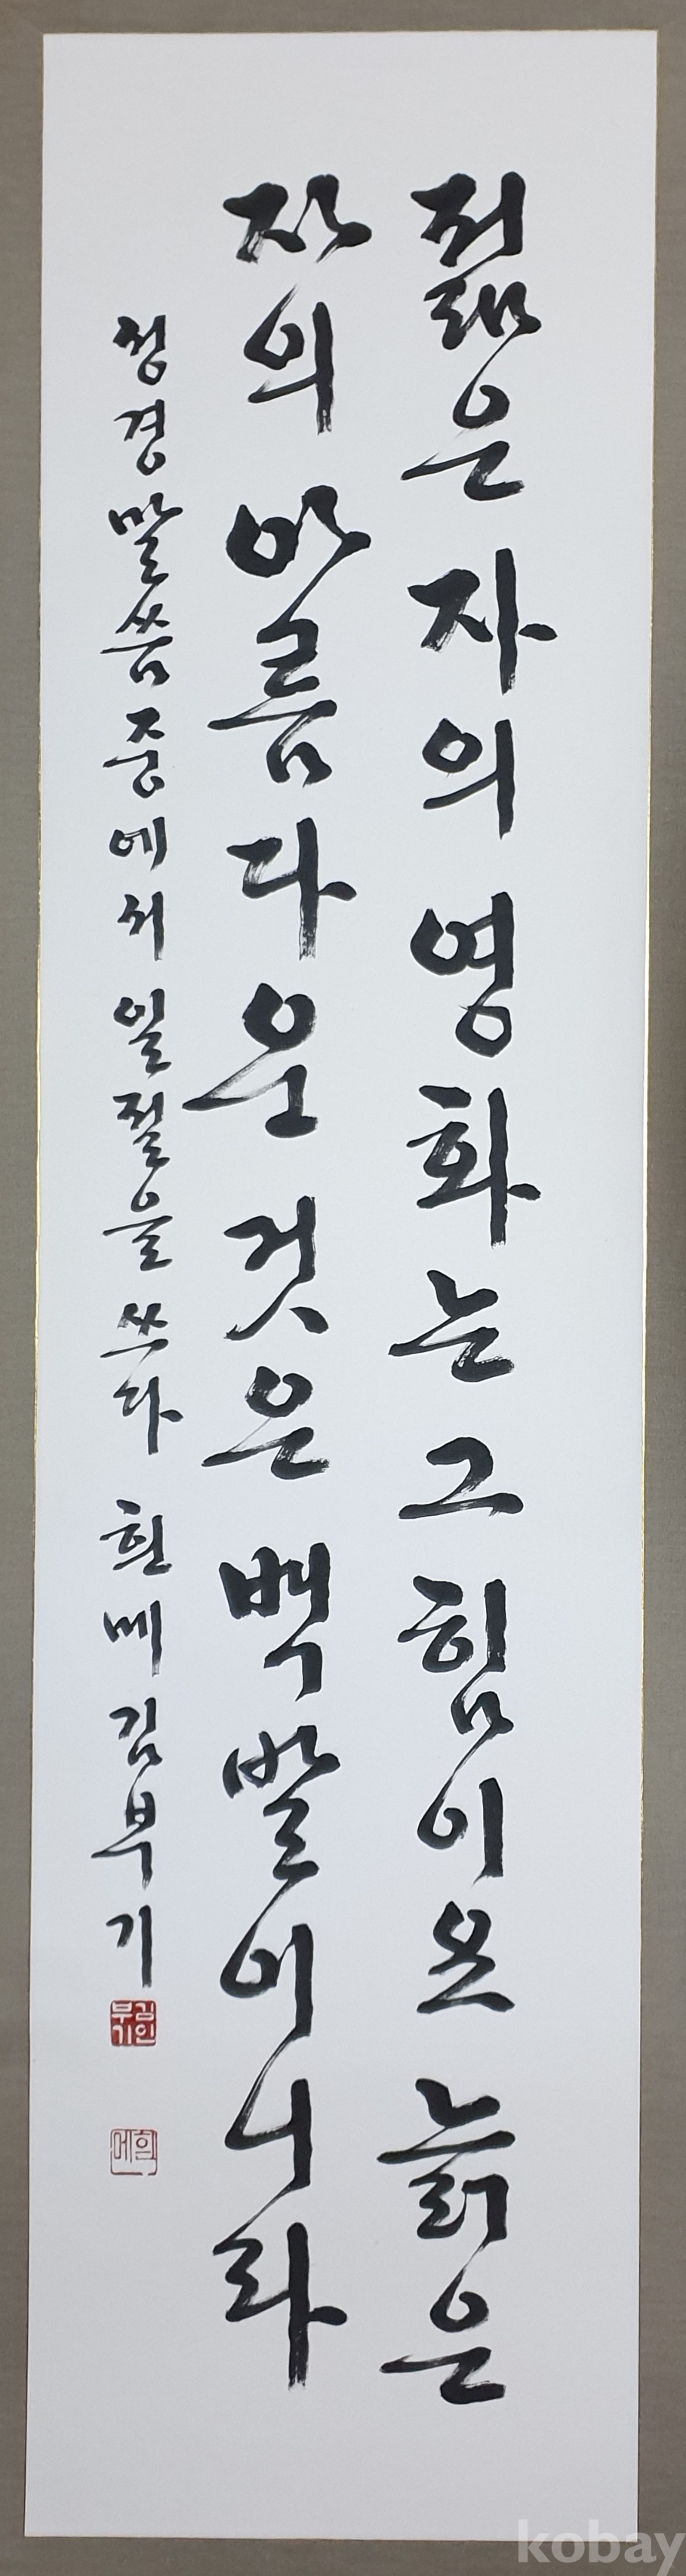 젊은 자의 영화는 그 힘이요 늙은
자의 아름다운 것은 백발이니라
성경 말씀 중에서 일절을 쓰다 흰메 김부기
김인부기
흰메
kobay